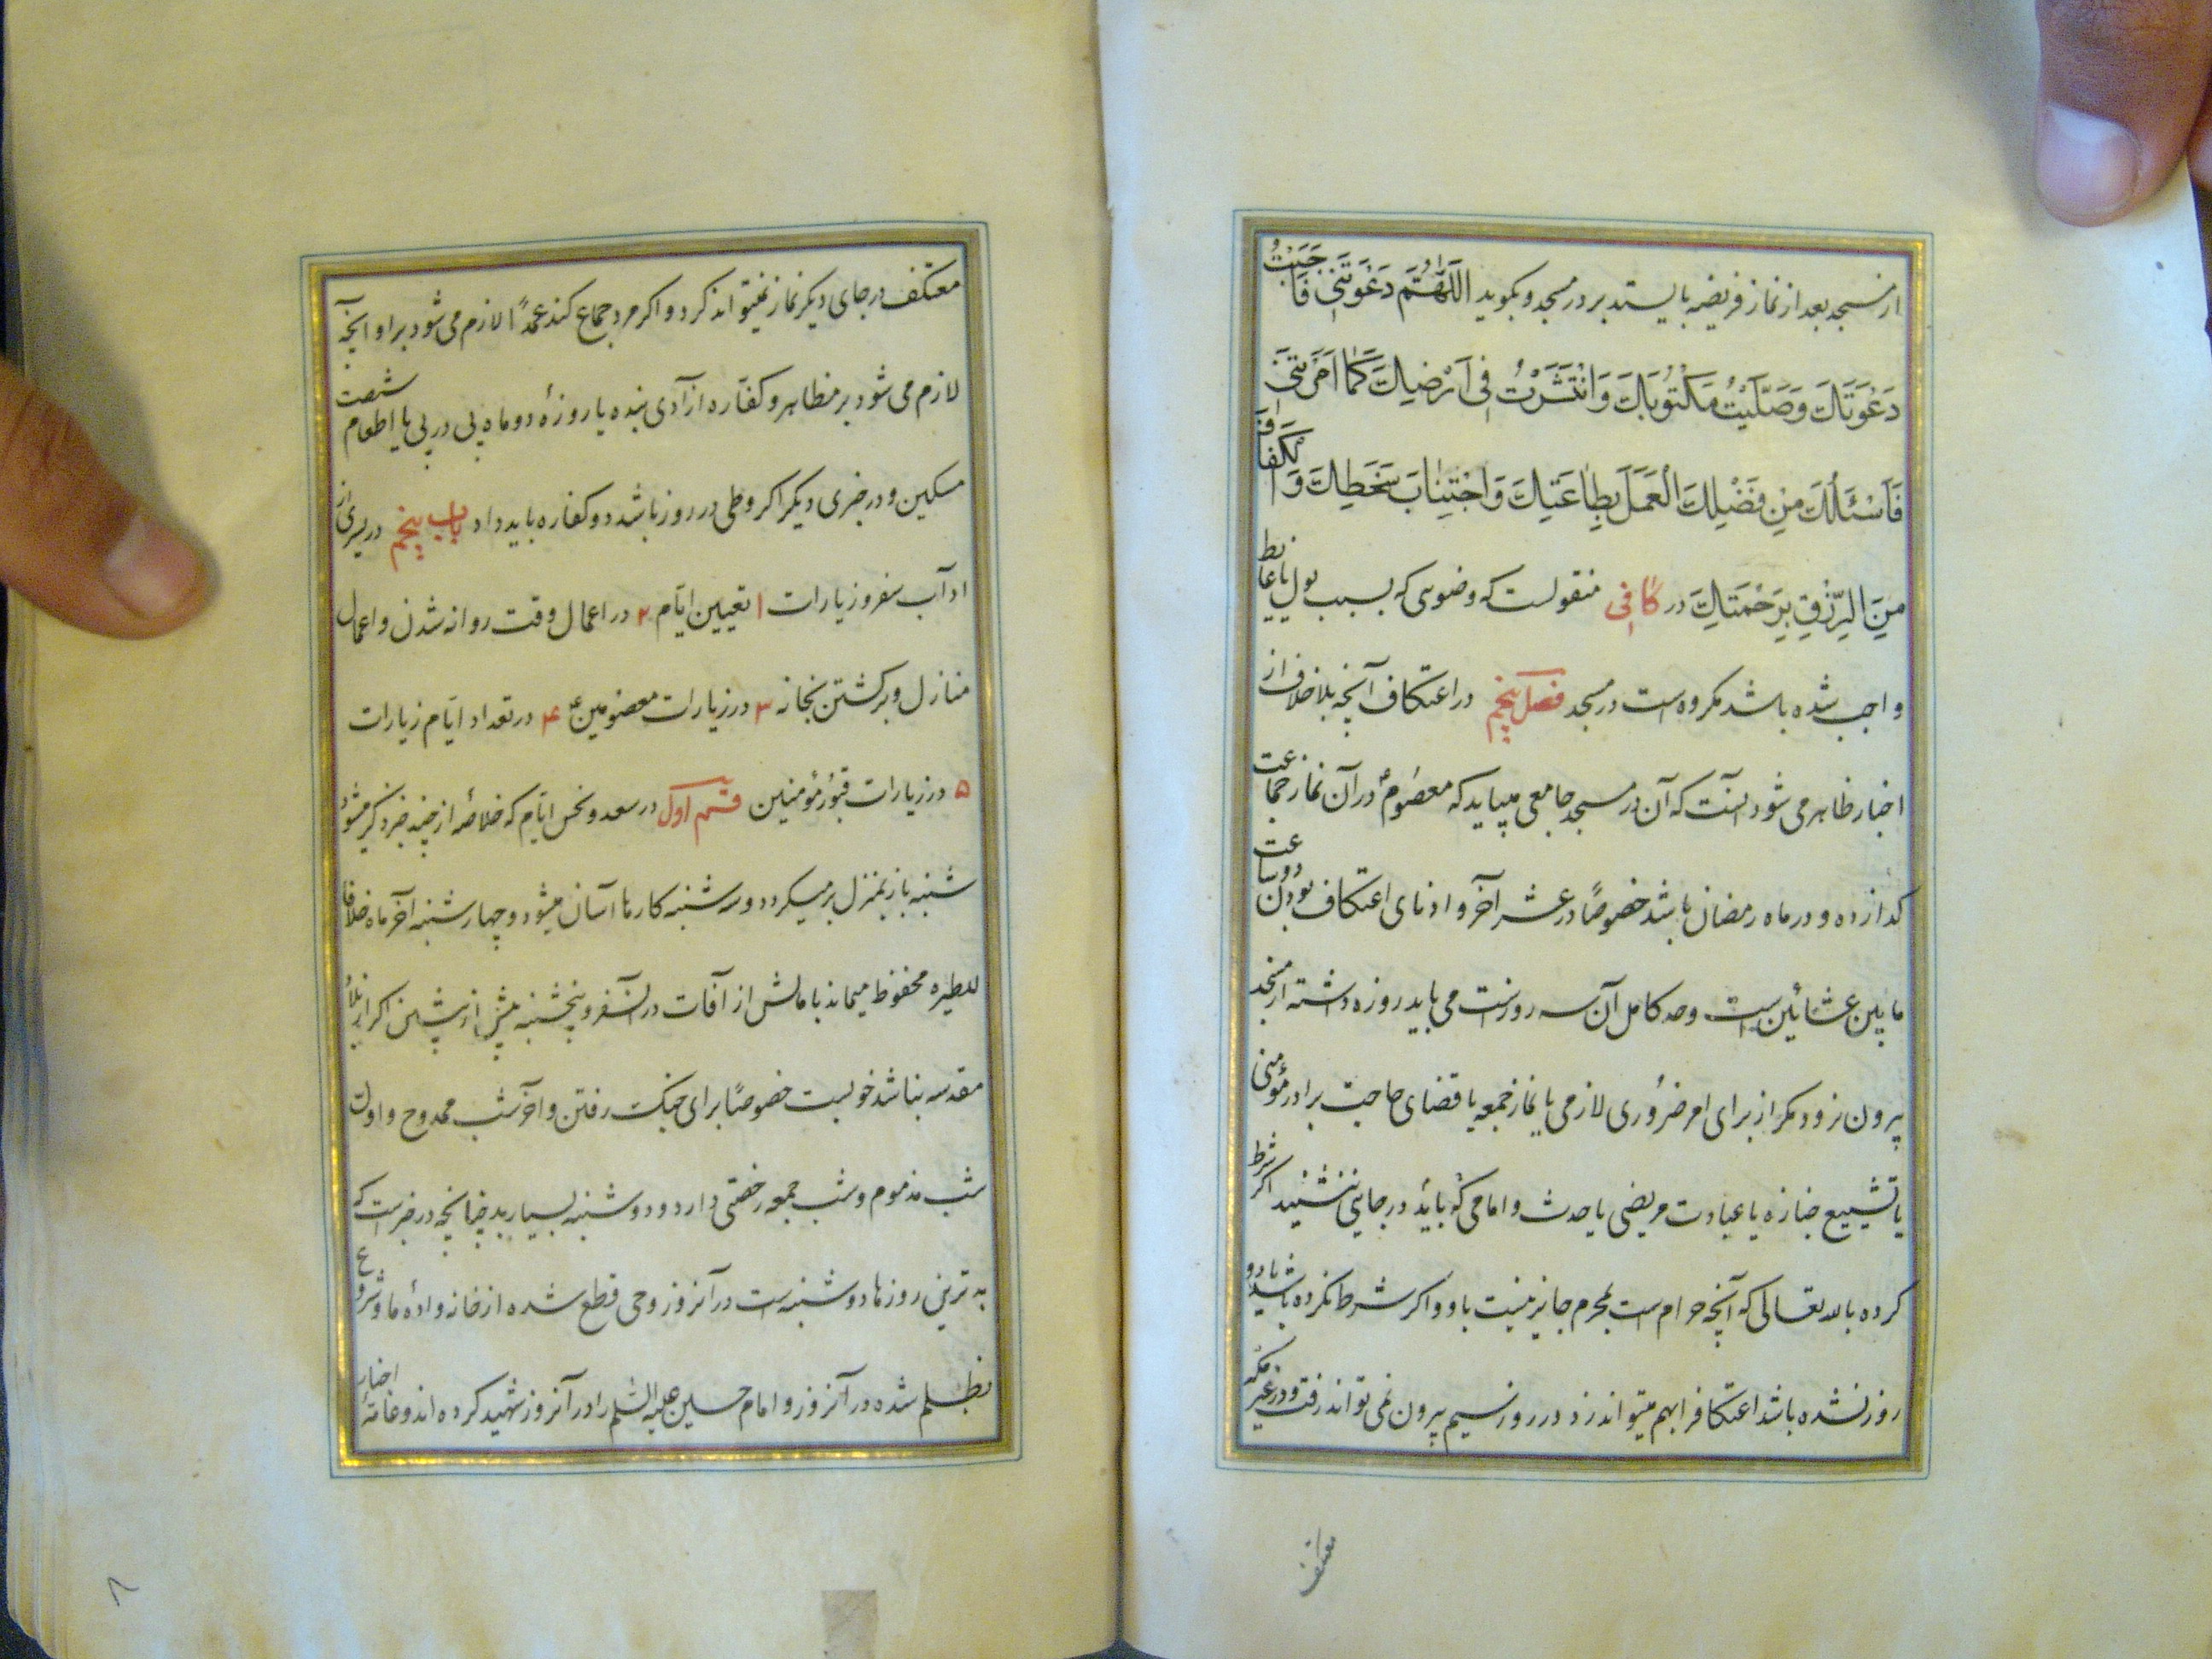 از مسجد بعد از نماز فریضه بایستد بر در مسجد و بگوید اَللّهُمَّ دَعَوْتَنی فَاَجَبْتُ
دَعْوَتَكَ وَصَلَّيْتُ مَكْتُوبَتَكَ وَانْتَشَرْتُ فِى اَرْضِكَ كَمَا اَمَرْتَنِى
فَاَسْئَلُكَ مِنْ فَضْلِكَ الْعَمَلَ بِطَاعَتِكَ وَاجْتِنابَ سَخَطِكَ وَالْكَفافَ
مِنَ الرِّزْقِ بِرَحْمَتِكَ در کافی منقولست که وضوی که بسبب بول یا غایط
واجب شده باشد مکروه است در مسجد فصل پنجم در اعتکاف آنچه بلاخلاف از
اخبار ظاهر می شود آنست که آن در مسجد جامعی میباید که معصومٌ در آن نماز جماعت
کذارده و در ماه رمضان باشد خصوصًا در عشر آخر و ادنای اعتکاف بودن دو ساعت
مابین عشائین است وحد کامل آن سه روزست می باید روزه داشته از مسجد
بیرون نرود مکر از برای امر ضُروری لازمی یا نماز جمعه یا قضای حاجت برادر مؤمنی
یا تشییع جنازه یا عیادت مریضی یا حدث و امامی که باید در جایی ننشیند اکر شرط
کرده بالله تعالی که آنچه حرام است بمحرم جایز نیست باو و اکر شرط نکرده باشد یا دو
روز نشده باشد اعتکاف را بهم میتواند زد در روز سیم بیرون نمی تواند رفت و در غیر مکه
معتکف
معتکف در جای دیکر نماز نمیتواند کرد و اکر مرد جماع کند عمدًا لازم می شود بر او آنچه
لازم می شود بر مظاهر و کفّاره از آزادی بنده یا روزهٔ دو ماه پی در پی یا اطعام شصت
مسکین و در خبری دیکر اکر وطی در روز باشد دو کفاره باید داد باب پنجم در یسری از
اداب سفر و زیارات ۱ تعیین ایّام ۲ در اعمال وقت روانه شدن و اعمال
منازل و برکشتن بخانه ۳ در زیارات معصومین ع ۴ در تعداد ایّام زیارات
۵ در زیارات قبور مؤمنین قسم اول در سعد و نحس ایّام که خلاصه از چند خبر ذکر میشود
شنبه باز بمنزل برمیکردد و سه شنبه کارها آسان میشود و چهارشنبه آخر ماه خلافا
للطیره محفوظ میماند با مالش از آفات در آنسفر و پنجشنبه پیش از پیشین اکر از بلاد
مقدسه بناشد خوبست خصوصًا برای جنکت رفتن و آخر شب ممدوح و اولت
شب مذموم و شب جمعه رخصتی دارد و دوشنبه بسیار بد چنانچه در خبر است که
بدترین روزها دوشنبه است در آنروز وحی قطع شده از خانه وادهٔ ما و شروع
بظلم شده در آنروز و امام حسین علیه السّلم را در آنروز شهید کرده اند و عامّه اخبار
۸